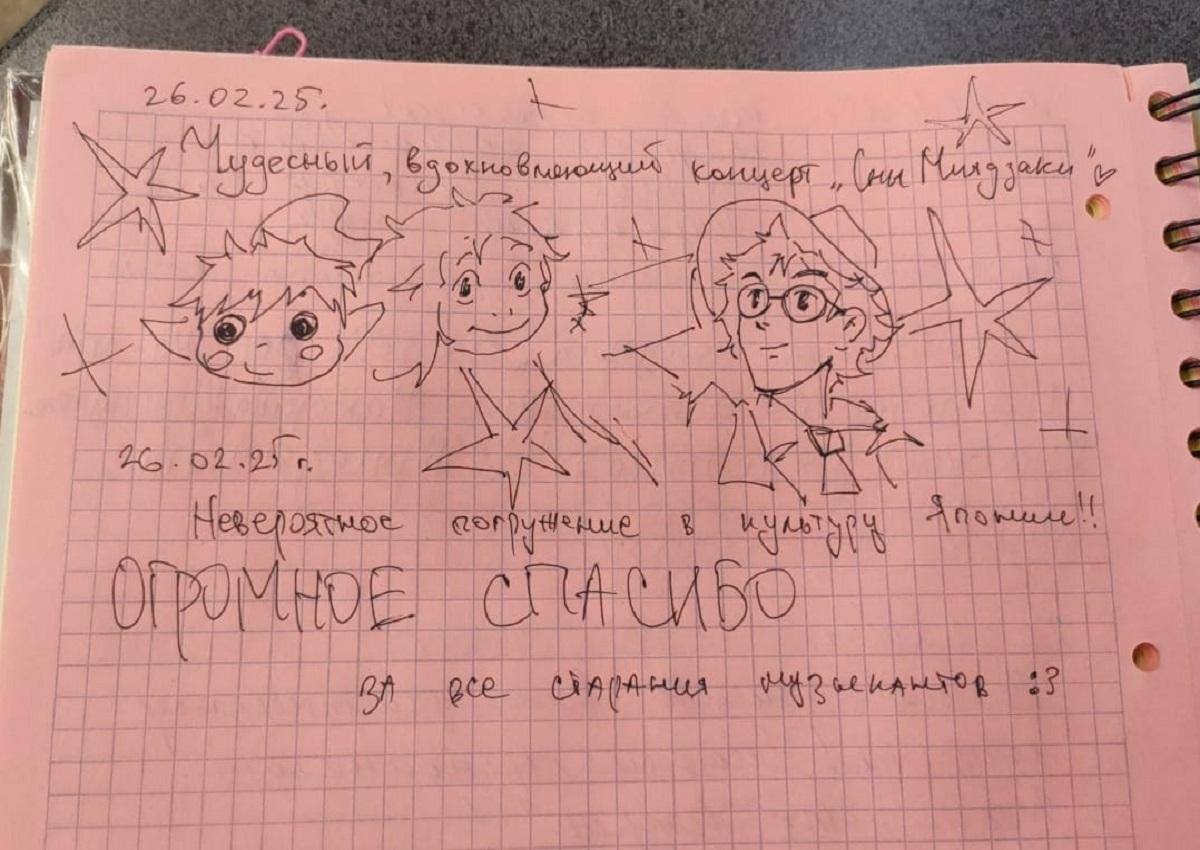 26.02.25.
Чудесный, вдохновляющий концерт „Сны Миядзаки” ♡
26.02.25 г.
Невероятное погружение в культуру Японии!!
ОГРОМНОЕ СПАСИБО
ЗА ВСЕ СТАРАНИЯ МУЗЫКАНТОВ :3